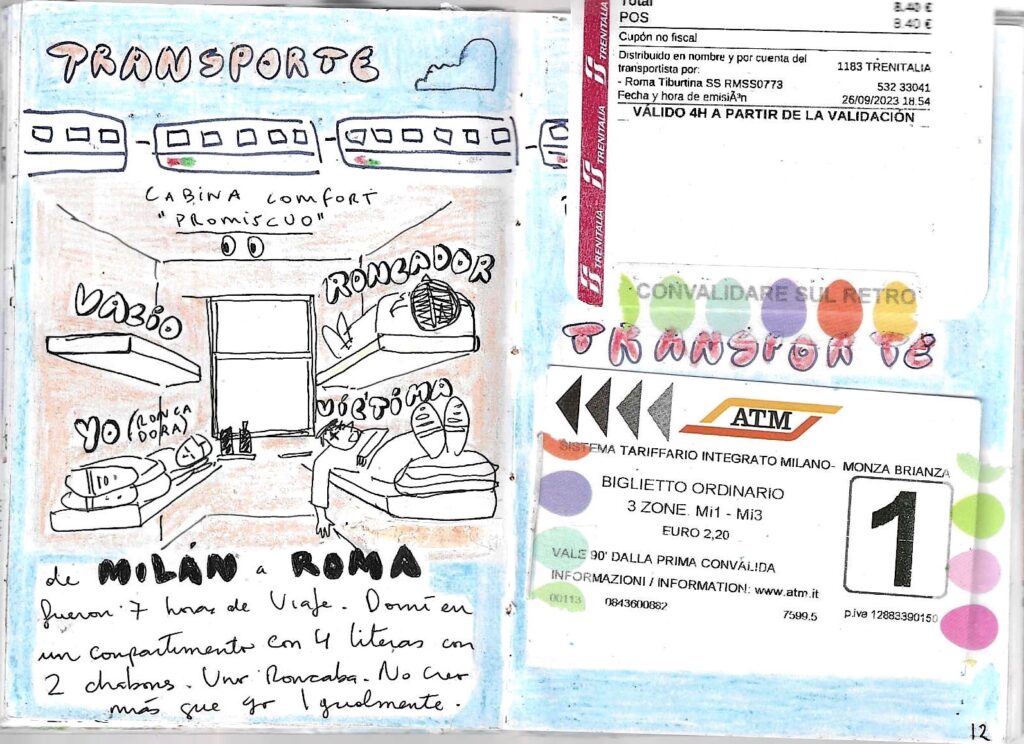 TRANSPORTE
CABINA COMFORT
"PROMISCUO"
VACIO
RONCADOR
YO (RONCA
DORA)
VÍCTIMA
de MILÁN a ROMA
fueron 7 horas de Viaje. Domí en
un compartimento con 4 literas con
2 chabones. Uno Roncaba. No creo
más que yo Igualmente.
Total 8.40 €
POS 8.40 €
Cupón no fiscal
Distribuido en nombre y por cuenta del
transportista por: 1183 TRENITALIA
- Roma Tiburtina SS RMSS0773 532 33041
Fecha y hora de emisiÃ³n 26/09/2023 18.54
VÁLIDO 4H A PARTIR DE LA VALIDACIÓN
TRENITALIA
TRENITALIA
TRENITALIA
CONVALIDARE SUL RETRO
TRANSPORTE
ATM
SISTEMA TARIFFARIO INTEGRATO MILANO- MONZA BRIANZA
BIGLIETTO ORDINARIO
3 ZONE. Mi1 - Mi3
EURO 2,20
1
VALE 90' DALLA PRIMA CONVALIDA
INFORMAZIONI / INFORMATION: www.atm.it
00113 0843600882
7599.5 p.iva 12883390150
12